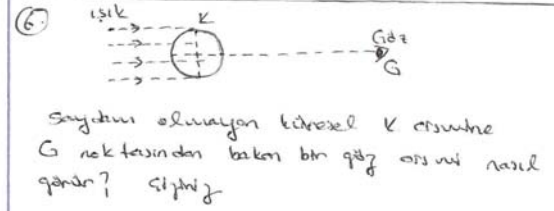 6.
ışık
K
Göz
G
Saydam olmayan küresel K cismine
G noktasından bakan bir göz cismi nasıl
görür? Çiziniz